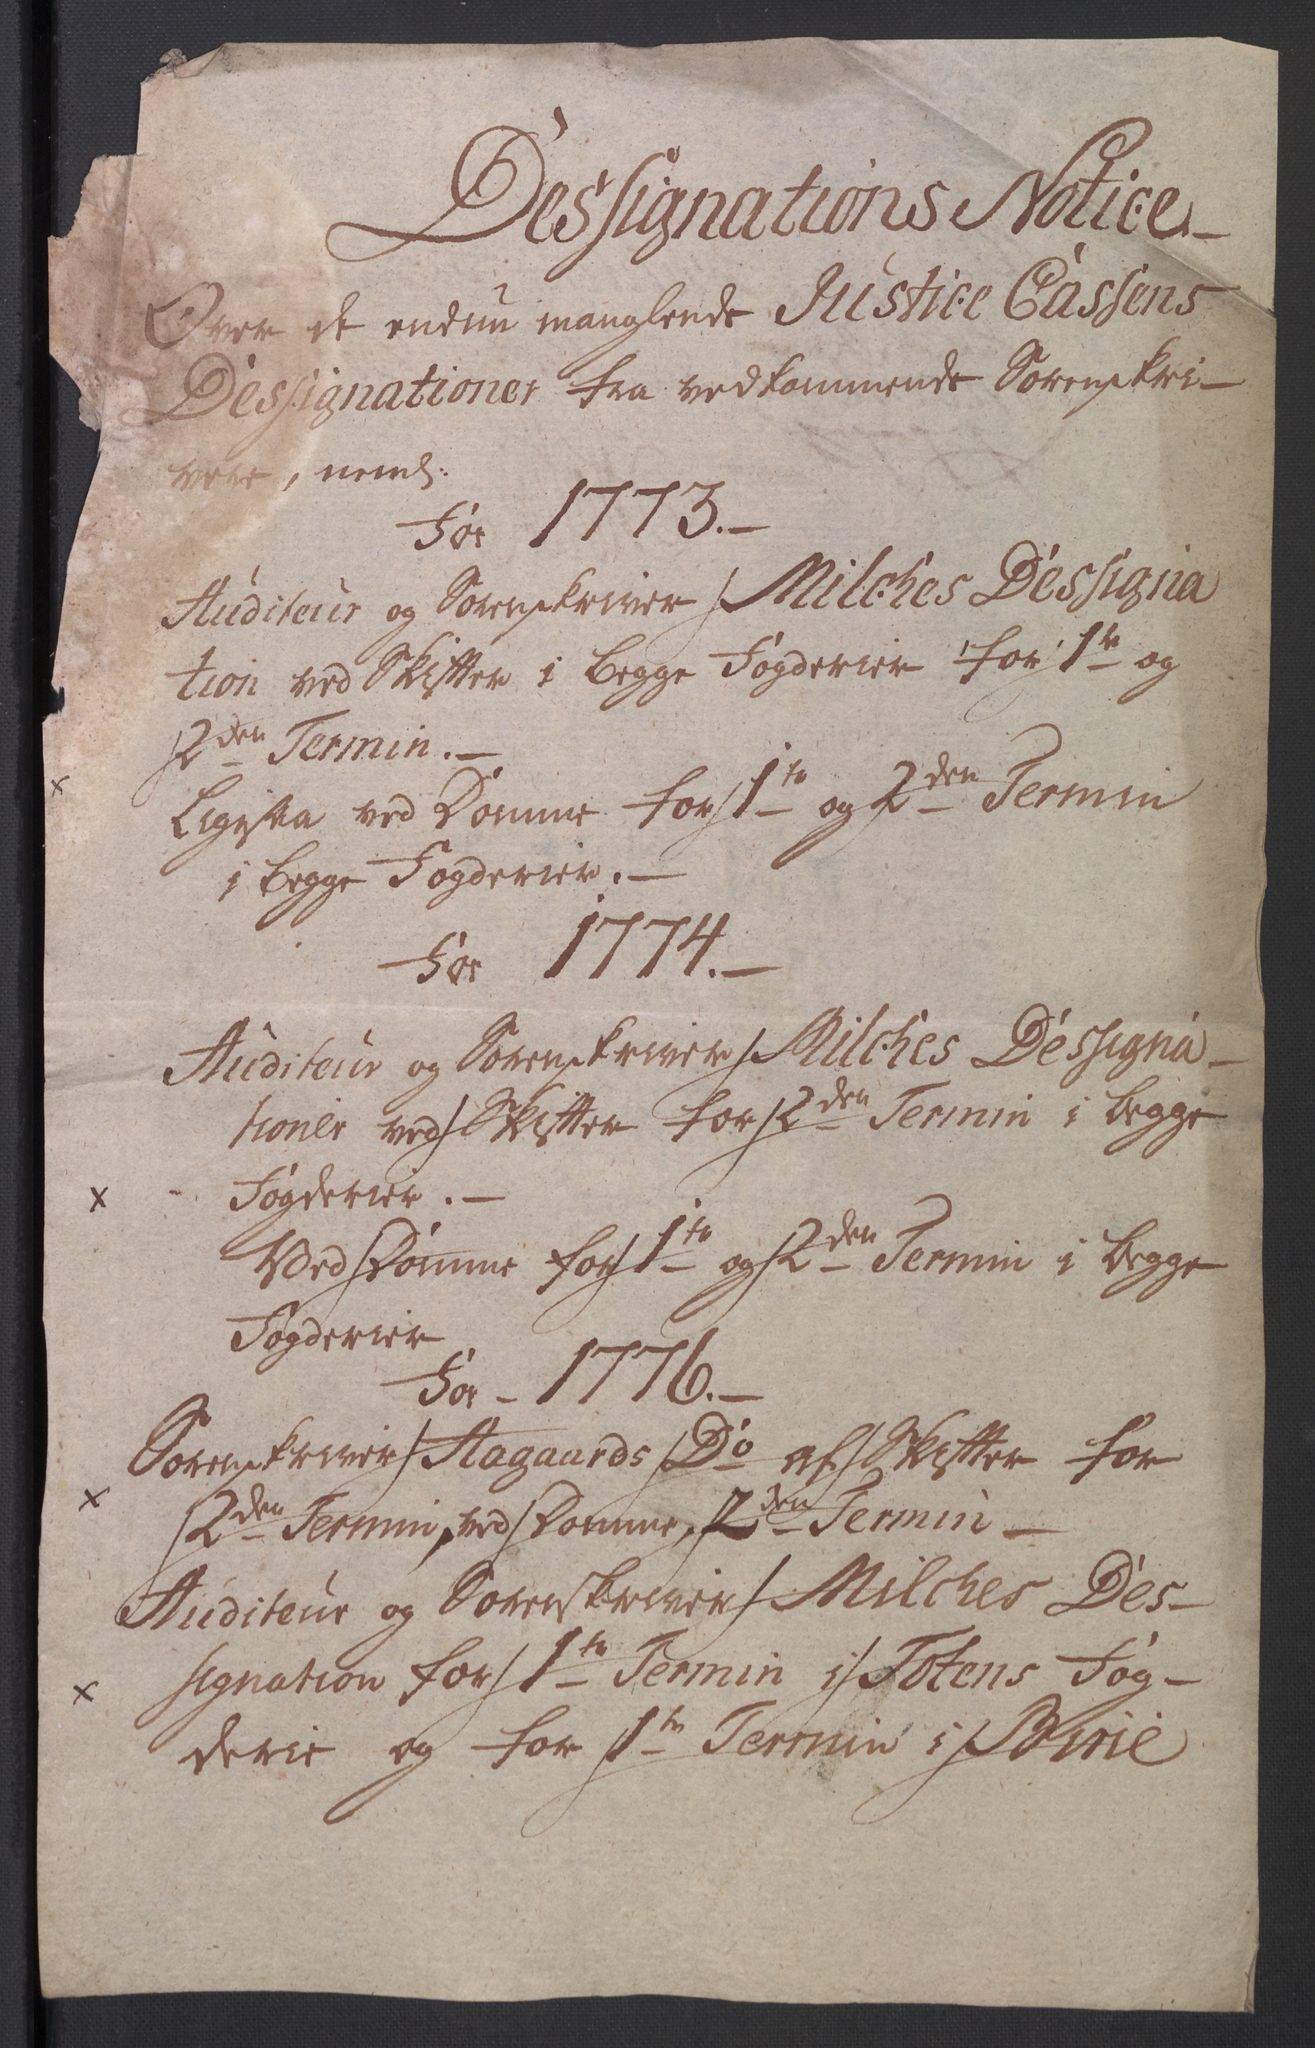 Dessignations Notice.
Over de endnu manglende Justice Cassens
Dessignationer fra vedkommende Sorenskri-
vere, neml:
For 1773.
Auditeur og Sorenskriver Milches Dessigna
tion ved Skifter i begge Fogderier for 1te og
2den Termin.
Ligesaa ved Domme for 1te og 2den Termin
i begge Fogderier.
For 1774.
Auditeur og Sorenskriver Milches Dessigna-
tioner ved Skifter for 2den Termin i begge
x Fogderier.
Ved Domme for 1te og 2den Termin i begge
Fogderier
For - 1776.
Sorenskriver Aagaards Do af Skifter for
x 2den Termin, ved Domme, 2den Termin
Auditeur og Sorenskriver Milches Des-
x signation for 1te Termin i Totens Fog-
derie og for 1te Termin i Birie